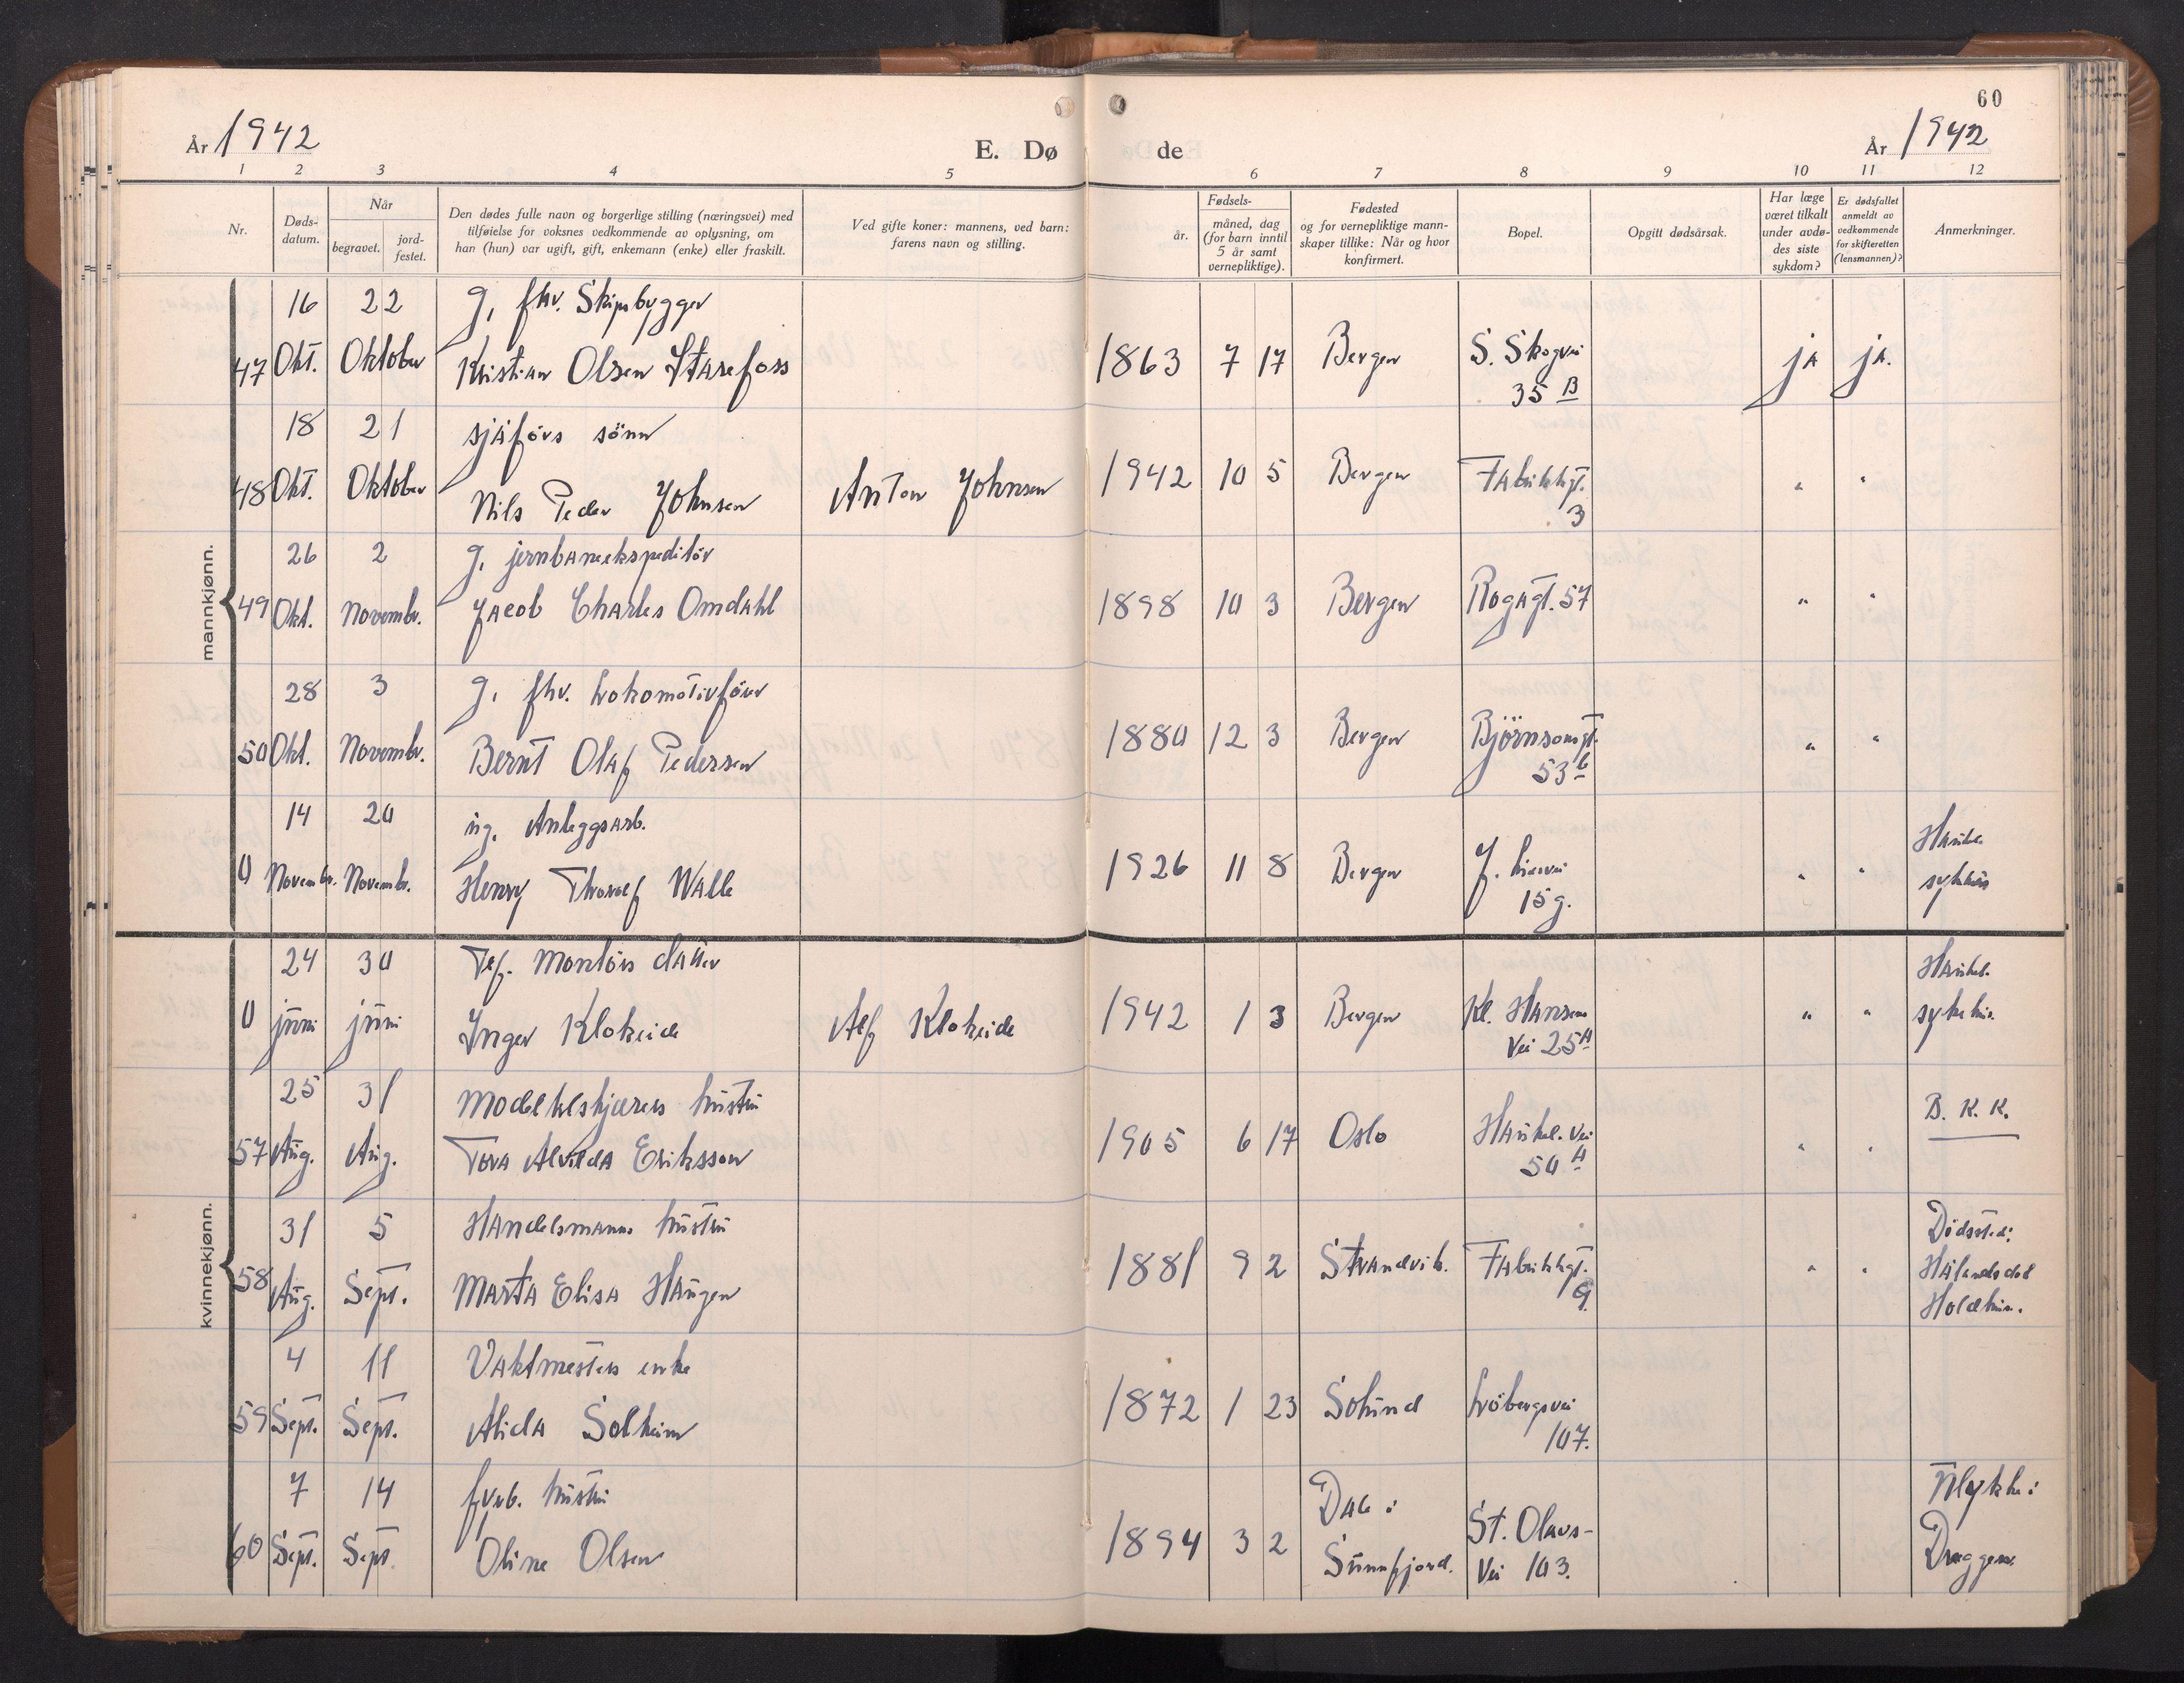 60
År 1942
E. Dø
de
År 1942
1 2 3 4 5 6 7 8 9 10 11 12
Nr.
Døds-
datum.
Når
begravet.
jord-
festet.
Den dødes fulle navn og borgerlige stilling (næringsvei) med
tilføielse for voksnes vedkommende av oplysning, om
han (hun) var ugift, gift, enkemann (enke) eller fraskilt.
Ved gifte koner: mannens, ved barn:
farens navn og stilling.
Fødsels-
år.
måned, dag
(for barn inntil
5 år samt
vernepliktige).
Fødested
og for vernepliktige mann-
skaper tillike: Når og hvor
konfirmert.
Bopel.
Opgitt dødsårsak.
Har læge
været tilkalt
under avdø-
des siste
sykdom?
Er dødsfallet
anmeldt av
vedkommende
for skifteretten
(lensmannen)?
Anmerkninger.
mannkjønn.
16 22 g. fhv. Skipsbygger
47 Okt. Oktober Kristian Olsen Starefoss 1863 7 17 Bergen S. Skogvei ja ja.
35 B
18 21 sjåførs sönn
48 Okt. Oktober Nils Peder Johnsen Anton Johnsen 1942 10 5 Bergen Fabrikkgt. " "
3
26 2 g. jernbaneekspeditör
49 Okt. Novembr. Jacob Charles Omdahl 1898 10 3 Bergen Rogagt. 57 " "
28 3 g. fhv. Lokomotivförer
50 Okt. Novembr. Bernt Olaf Pedersen 1880 12 3 Bergen Björnsonsgt. " "
53 b
14 20 ug. Anleggsarb.
0 Novembr. Novembr. Henry Thoralf Walle 1926 11 8 Bergen J. Liesvei " " Haukel.
15 g. sykehus
kvinnekjønn.
24 30 Tlf. Montörs datter
0 juni juni Inger Klokeide Alf Klokeide 1942 1 3 Bergen Kl. Hansens " " Haukel.
Vei 25 A sykehus.
25 31 Modellskjærers hustru
57 Aug. Aug. Tora Alvilda Eriksson 1905 6 17 Oslo Haukel. Vei " " B. K. K.
50 A
31 5 Handelsmanns hustru
58 Aug. Sept. Marta Elisa Haugen 1881 9 2 Strandvik. Fabrikkgt. " " Dödssted:
9. Hålandsdal
Holdhus.
4 11 Vaktmesters enke
59 Sept. Sept. Alida Solheim 1872 1 23 Solund Löbergsvei
107.
7 14 fyrb. hustru
60 Sept. Sept. Oline Olsen 1894 3 2 Dale i St. Olavs-
Sunnfjord. Vei 103.
Ulykke:
Dreggen.